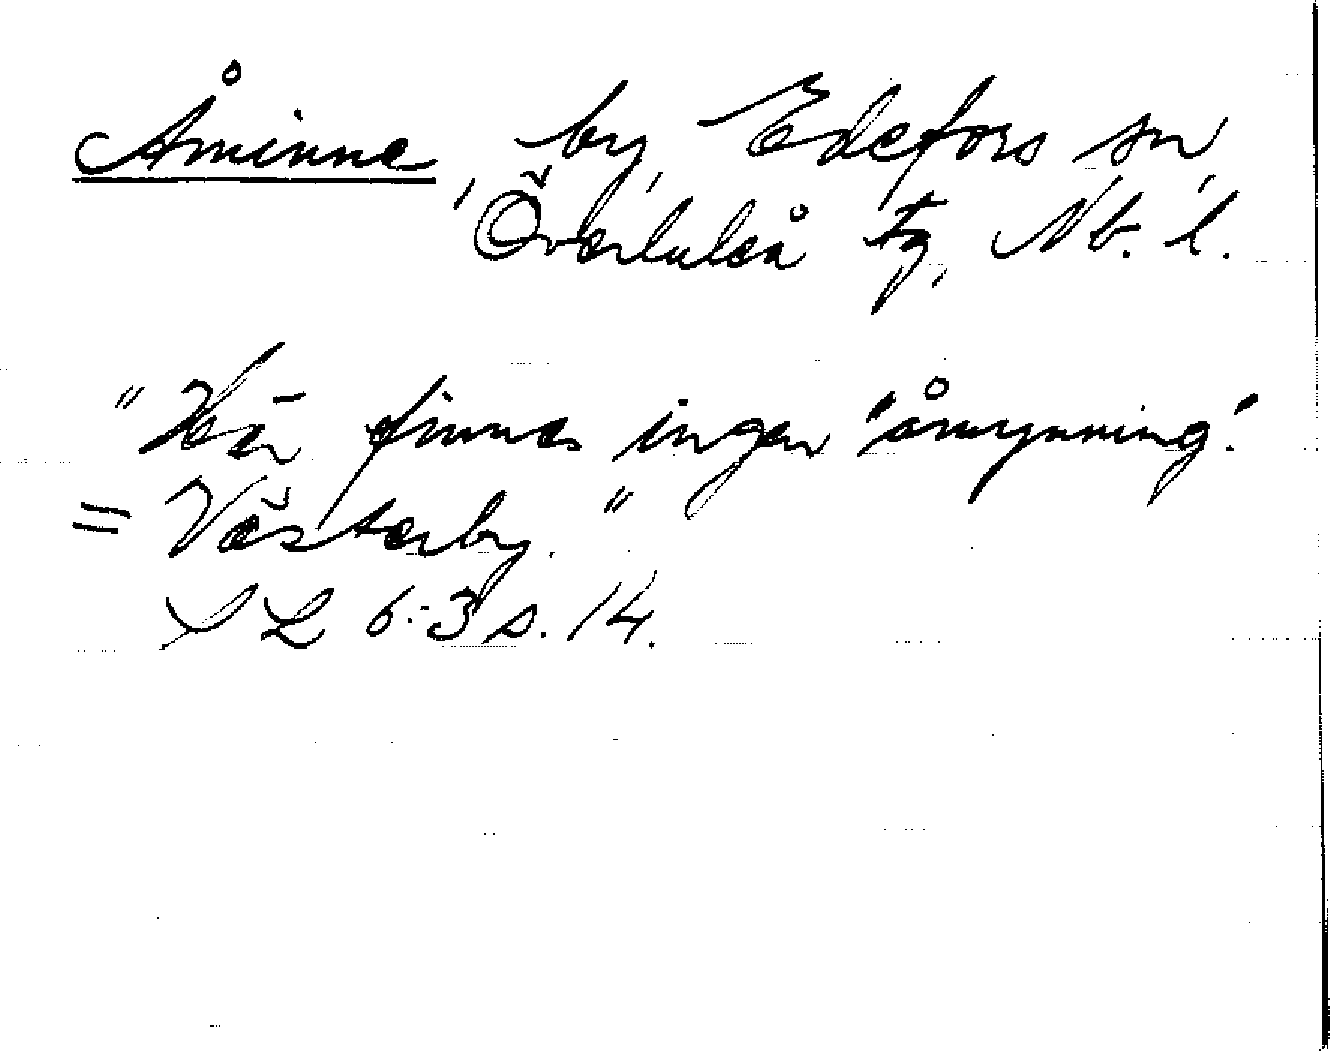 Åminne, by, Edefors sn,
Överluleå tg, Nb. l.
"Här finnes ingen 'åmynning'.
= Västerby."
SL 6:3 s. 14.